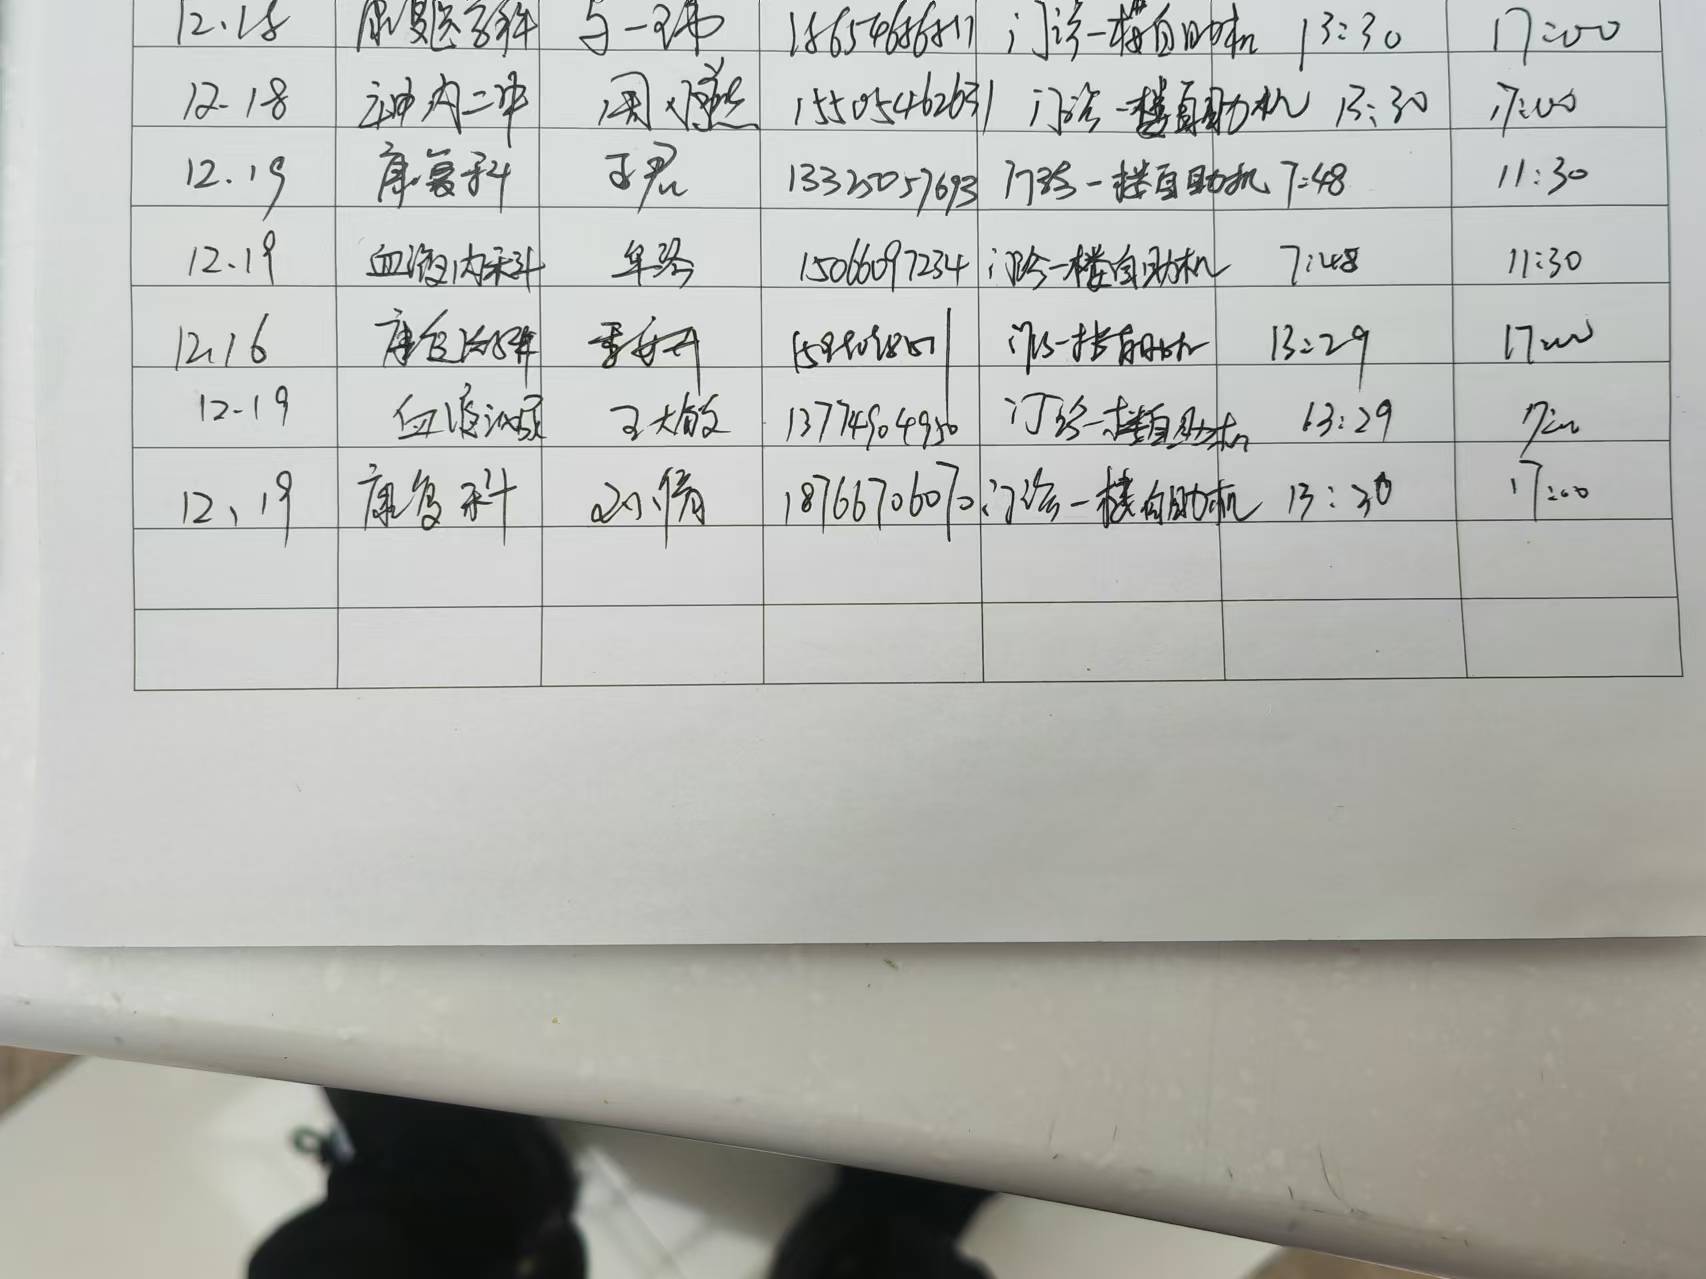 12.18 康复医学科 13:30 17:00
12.18 神内二 周 15505462631 门诊一楼自助机 13:30 17:00
12.19 康复科 王君 13325057693 门诊一楼自助机 7:48 11:30
12.19 血液内科 牟 15066097234 门诊一楼自助机 7:48 11:30
12.16 门诊一楼自助机 13:29 17:00
12.19 血液 王大敏 13774904950 门诊一楼自助机 13:29 17:00
12.19 康复科 刘倩 18766706070 门诊一楼自助机 13:30 17:00